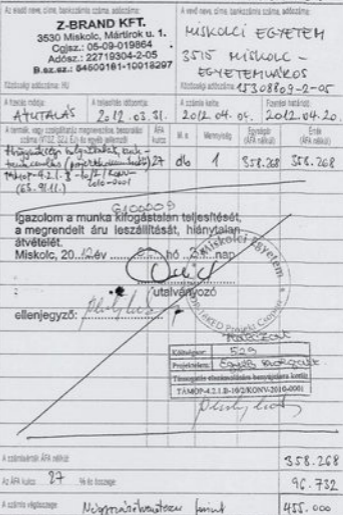 Az eladó neve, címe, bankszámla száma, adószáma:
Z-BRAND KFT.
3530 Miskolc, Mártírok u. 1.
Cgjsz.: 05-09-019864
Adósz.: 22719304-2-05
B.sz.sz.: 54600161-10018297
Közösségi adószáma: HU
A vevő neve, címe, bankszámla száma, adószáma:
MISKOLCI EGYETEM
3515 MISKOLC-
EGYETEMVÁROS
Közösségi adószáma: 15308809-2-05
A fizetés módja: A teljesítés időpontja: A számla kelte: Fizetési határidő:
ÁTUTALÁS 2012.03.31. 2012.04.04. 2012.04.20.
ÁFA kulcs M. e. Mennyiség Egységár (ÁFA nélkül) Érték (ÁFA nélkül)
27 db 1 358.268 358.268
TÁMOP-4.2.1.B-10/2/KONV-
2010-0001
G100009
Igazolom a munka kifogástalan teljesítését,
a megrendelt áru leszállítását, hiánytalan
átvételét.
Miskolc, 2012 év hó nap
utalványozó
ellenjegyző:
Miskolci Egyetem
529
Támogatás elszámolására benyújtásra került
TÁMOP-4.2.1.B-10/2/KONV-2010-0001
A számlaérték ÁFA nélkül: 358.268
Az ÁFA kulcs 27 % és összege: 96.732
A számla végösszege: 455.000